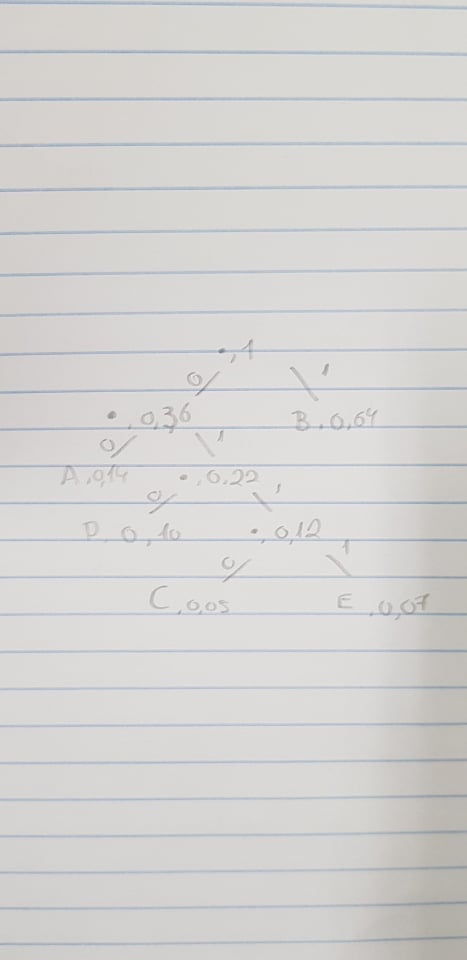 •, 1
0 1
•, 0,36 B, 0,64
0 1
A, 0,14 •, 0,22
0 1
D, 0,10 •, 0,12
0 1
C, 0,05 E, 0,07